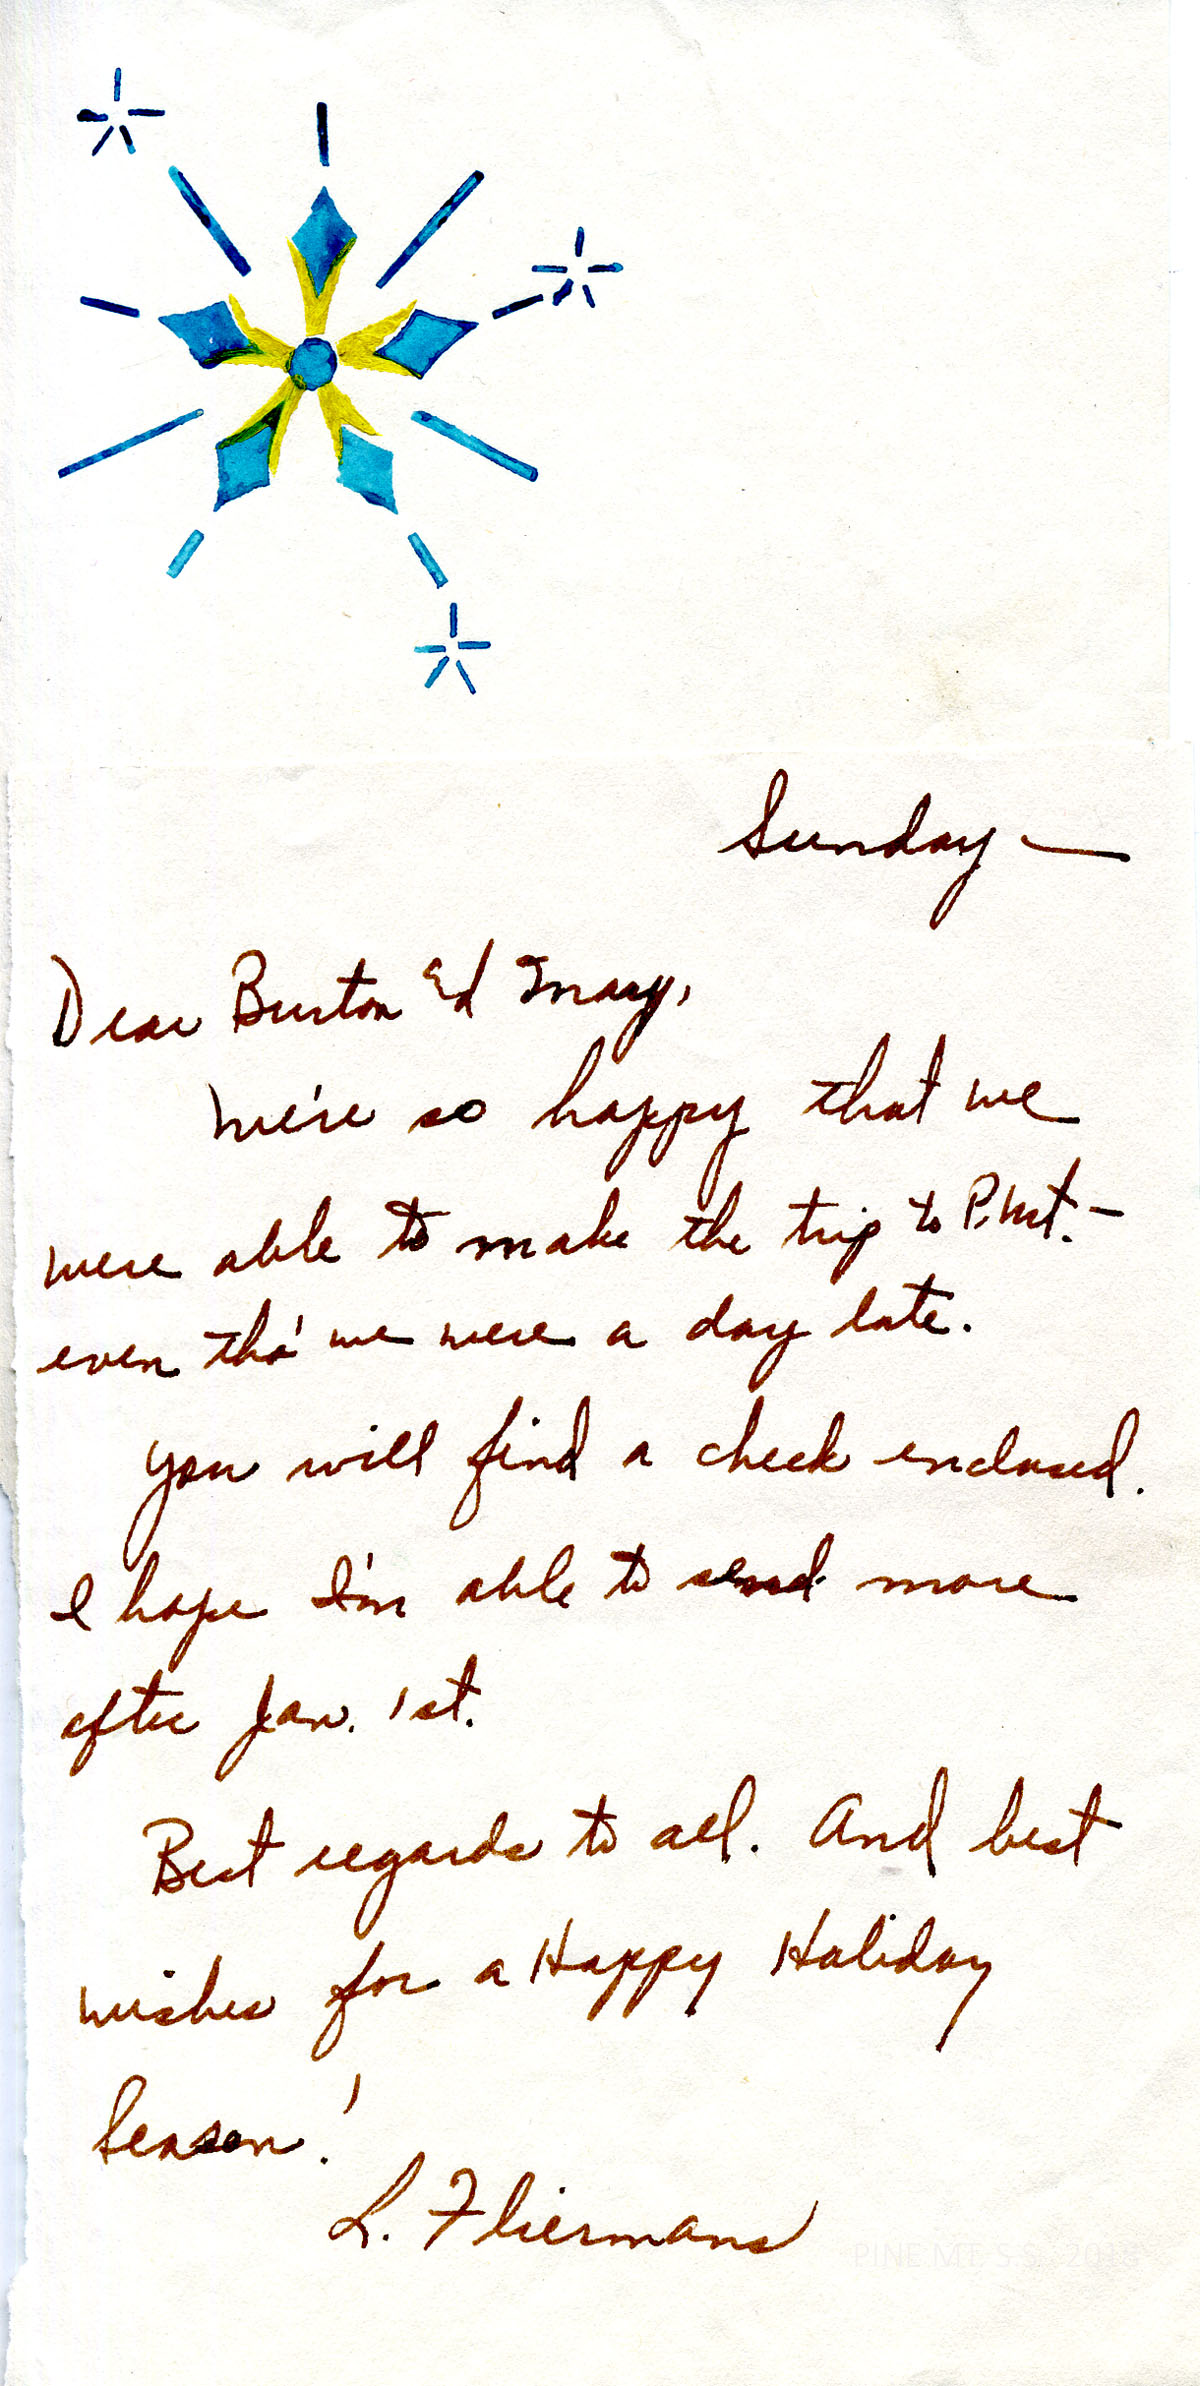 Sunday —
Dear Burton Ed Mary,
We're so happy that we
were able to make the trip to P. Mt. –
even tho' we were a day late.
You will find a check enclosed.
I hope I'm able to send more
after Jan. 1st.
Best regards to all. And best
wishes for a Happy Holiday
Season!
L. Fliermans
PINE MT. S.S. 2018